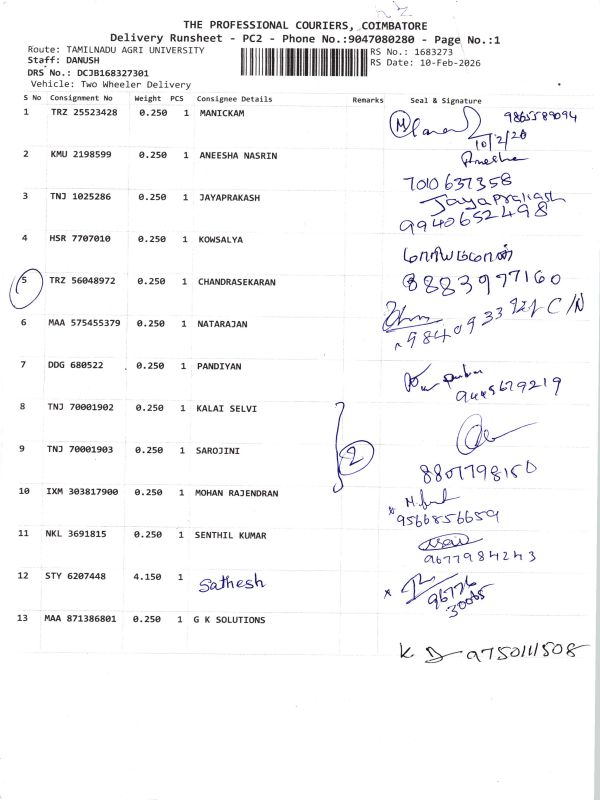 THE PROFESSIONAL COURIERS, COIMBATORE
Delivery Runsheet - PC2 - Phone No.:9047080280 - Page No.:1
Route: TAMILNADU AGRI UNIVERSITY RS No.: 1683273
Staff: DANUSH RS Date: 10-Feb-2026
DRS No.: DCJB168327301
Vehicle: Two Wheeler Delivery
S No Consignment No Weight PCS Consignee Details Remarks Seal & Signature
1 TRZ 25523428 0.250 1 MANICKAM 9865589094
10/2/26
2 KMU 2198599 0.250 1 ANEESHA NASRIN Aneesha
7010637358
3 TNJ 1025286 0.250 1 JAYAPRAKASH Jayaprakash
9940652498
4 HSR 7707010 0.250 1 KOWSALYA
5 TRZ 56048972 0.250 1 CHANDRASEKARAN 8883977160
6 MAA 575455379 0.250 1 NATARAJAN C/N
7 DDG 680522 0.250 1 PANDIYAN
9445679219
8 TNJ 70001902 0.250 1 KALAI SELVI
9 TNJ 70001903 0.250 1 SAROJINI 2
8807798150
10 IXM 303817900 0.250 1 MOHAN RAJENDRAN
9566856659
11 NKL 3691815 0.250 1 SENTHIL KUMAR
9677984243
12 STY 6207448 4.150 1 Sathesh
96776
30065
13 MAA 871386801 0.250 1 G K SOLUTIONS
9750111508